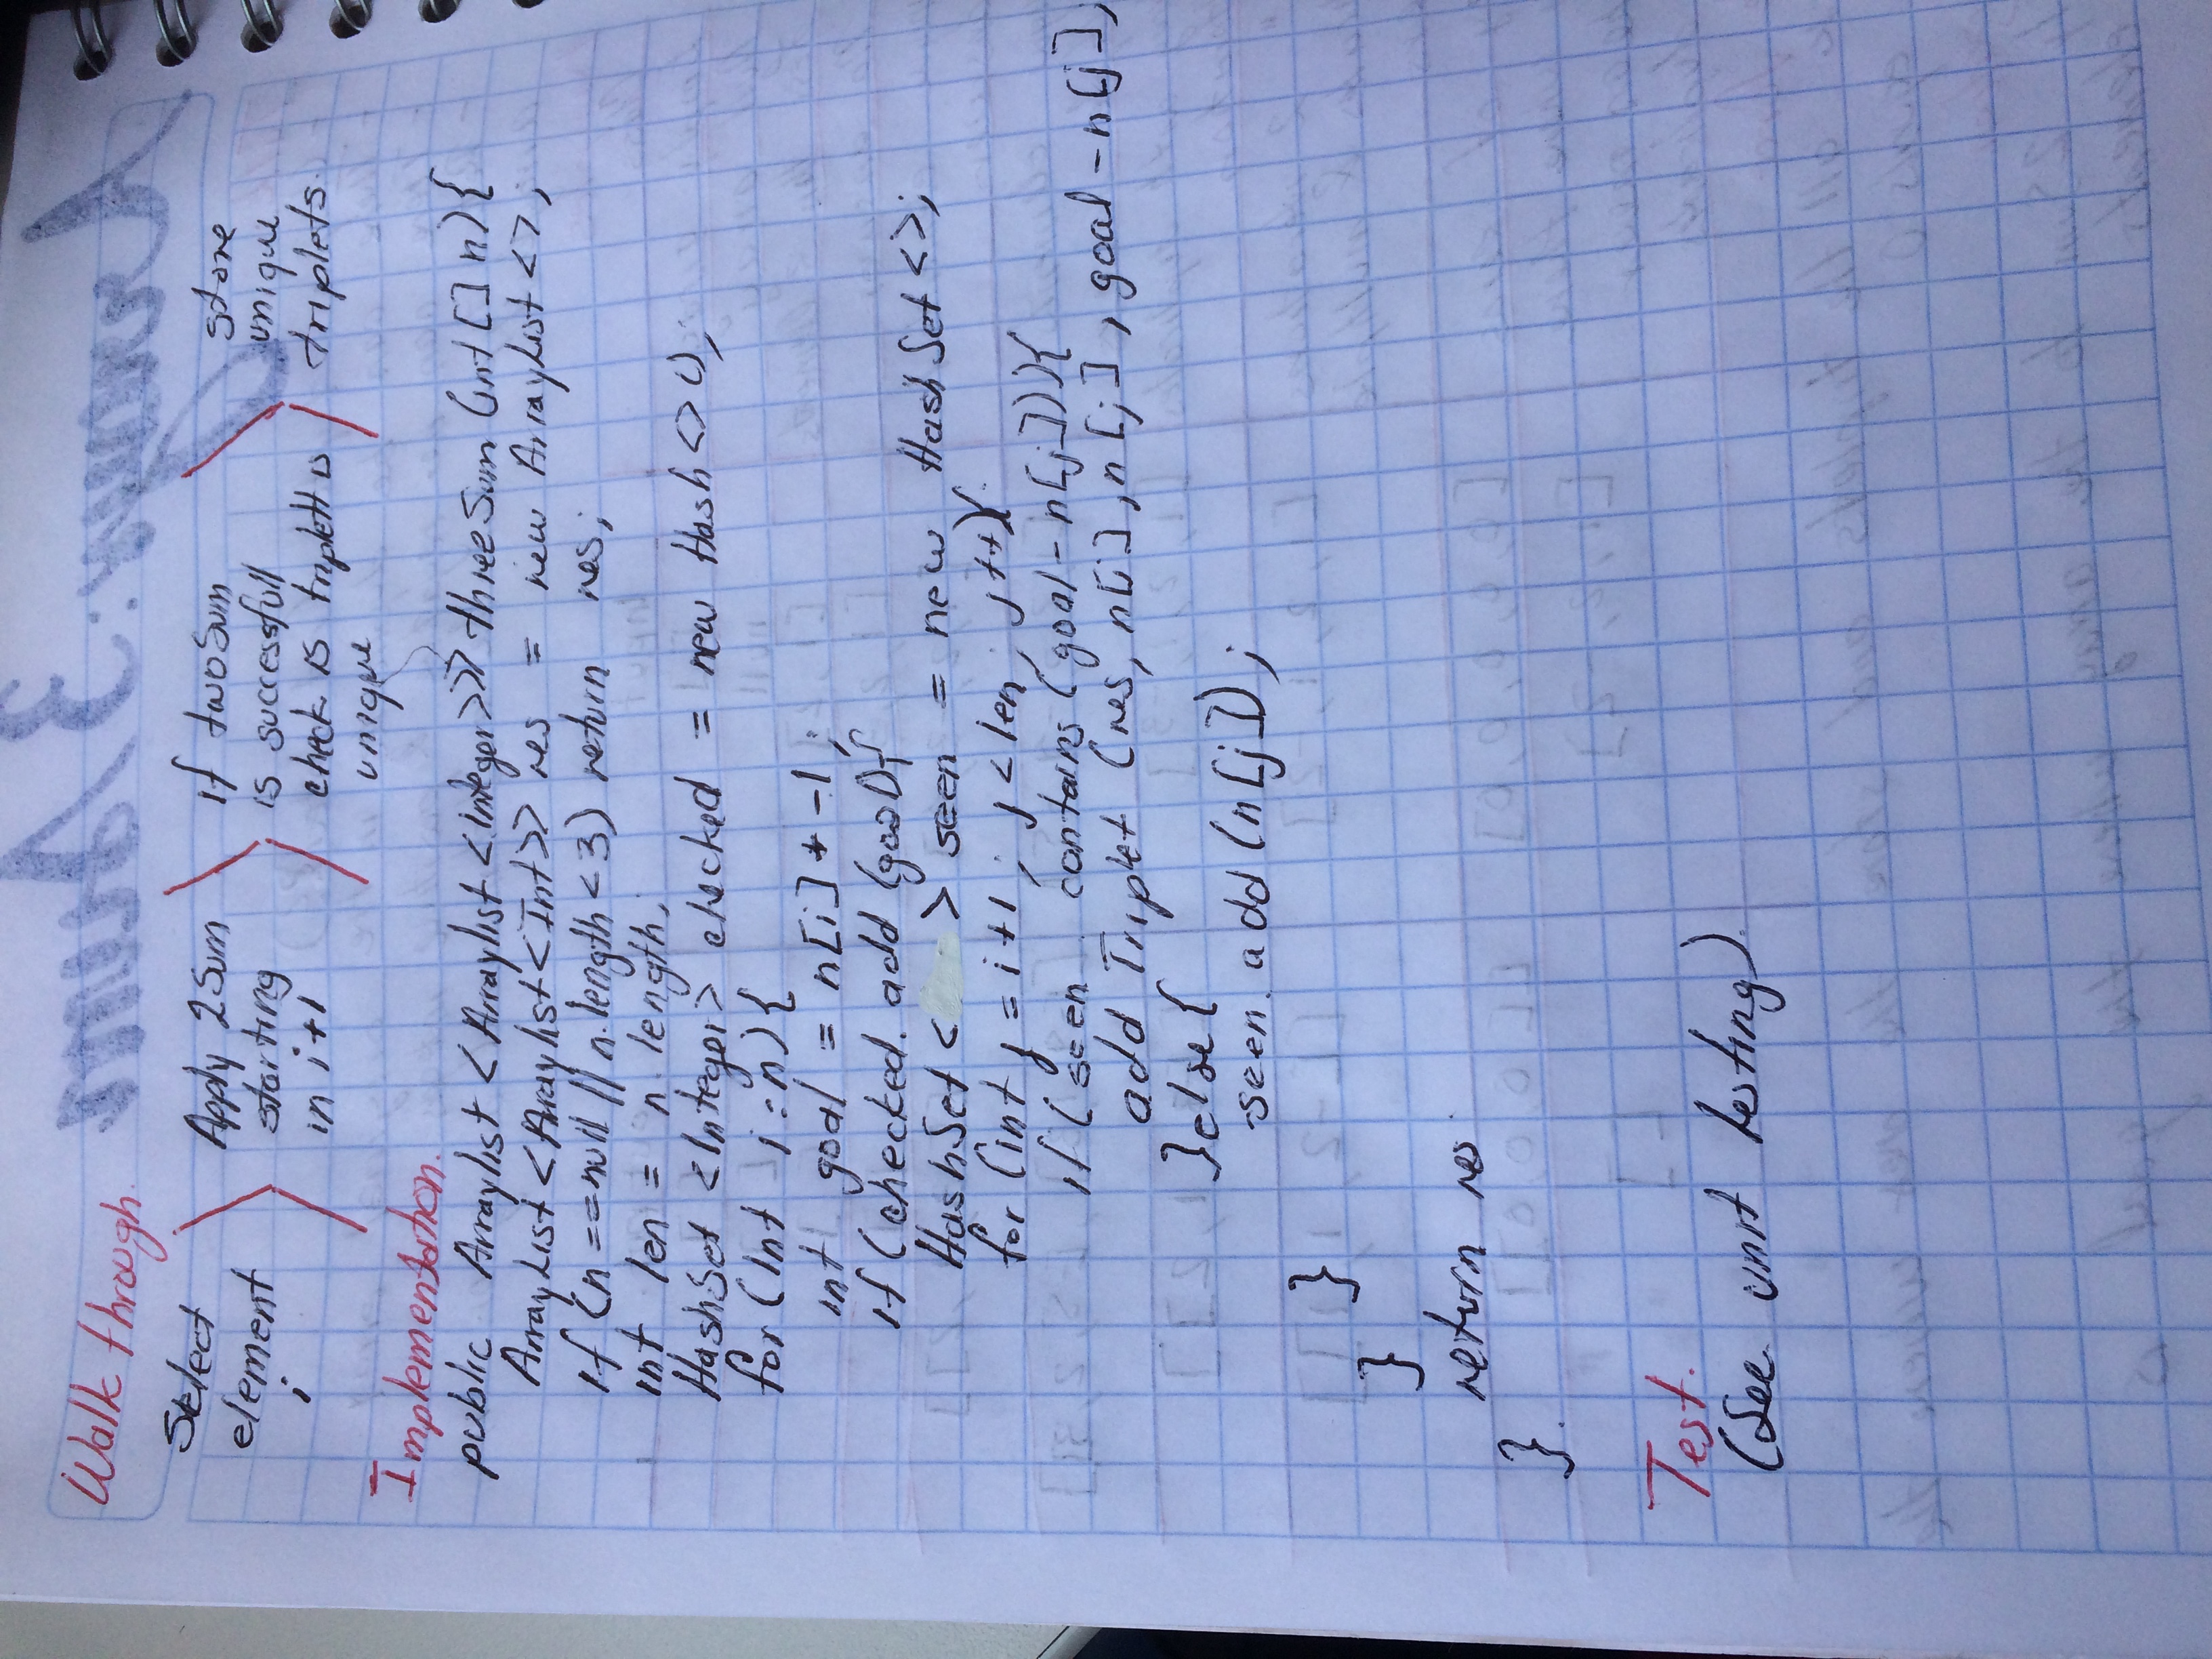 Walk through.
Select element i
Apply 2Sum starting in i+1
if twoSum is successfull check is triplett is unique
store unique triplets.
Implementation.
public Arraylist <Arraylist <Integer>>> threeSum (int [] n){
ArrayList <Arraylist <Int>> res = new ArrayList <>;
if (n ==null || n.length < 3) return res;
int len = n.length;
HashSet <Integer> checked = new Hash<>();
for (int i : n) {
int goal = n[i] * -1;
if (checked. add (goal){
HashSet < > seen = new HashSet <>;
for (int j = i+1 ; j < len ; j++){
if (seen . contains (goal - n[j])){
add Triplet (res, n[i], n[j], goal - n[j];
}else{
seen. add (n[j]);
}
}
return res
}.
Test.
(See unit testing).